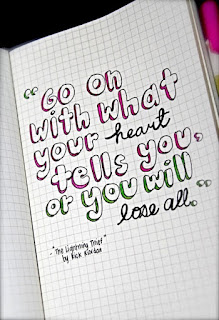 "Go On
with what
your heart
tells you,
or you will
lose all."
- "The Lightning Thief"
by Rick Riordan